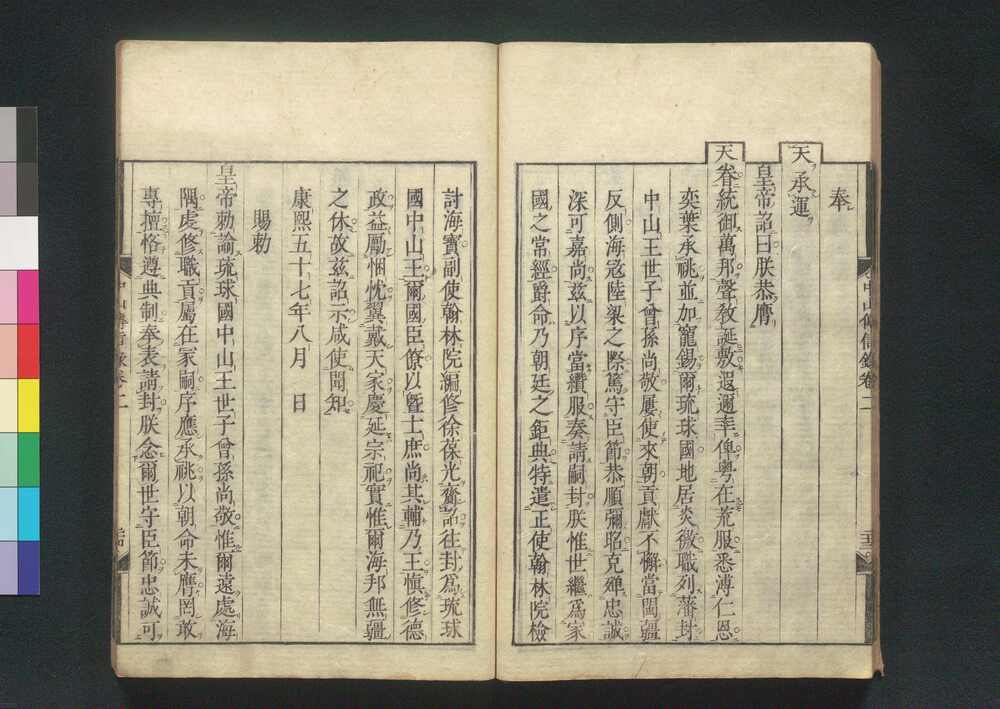 奉
天承運
皇帝詔曰朕恭膺
天眷統御萬邦聲敎誕敷遐邇率俾粤在荒服悉溥仁恩
奕葉承祧並加寵錫爾琉球國地居炎徼職列藩封
中山王世子曾孫尚敬屢使來朝貢獻不懈當閩疆
反側海寇陸梁之際篤守臣節恭順彌昭克殫忠誠
深可嘉尚兹以序當纘服奏請嗣封朕惟世繼爲家
國之常經爵命乃朝廷之鉅典特遣正使翰林院檢
中山傳信錄卷二
計海寶副使翰林院編修徐葆光賫詔往封爲琉球
國中山王爾國臣僚以曁士庶尚其輔乃王愼修德
政益勵悃忱翼戴天家慶延宗祀實惟爾海邦無疆
之休故兹詔示咸使聞知
康熙五十七年八月 日
賜勅
皇帝勅諭琉球國中山王世子曾孫尚敬惟爾遠處海
隅虔修職貢屬在冢嗣序應承祧以朝命未膺罔敢
專擅恪遵典制奉表請封朕念爾世守臣節忠誠可
中山傳信錄卷二